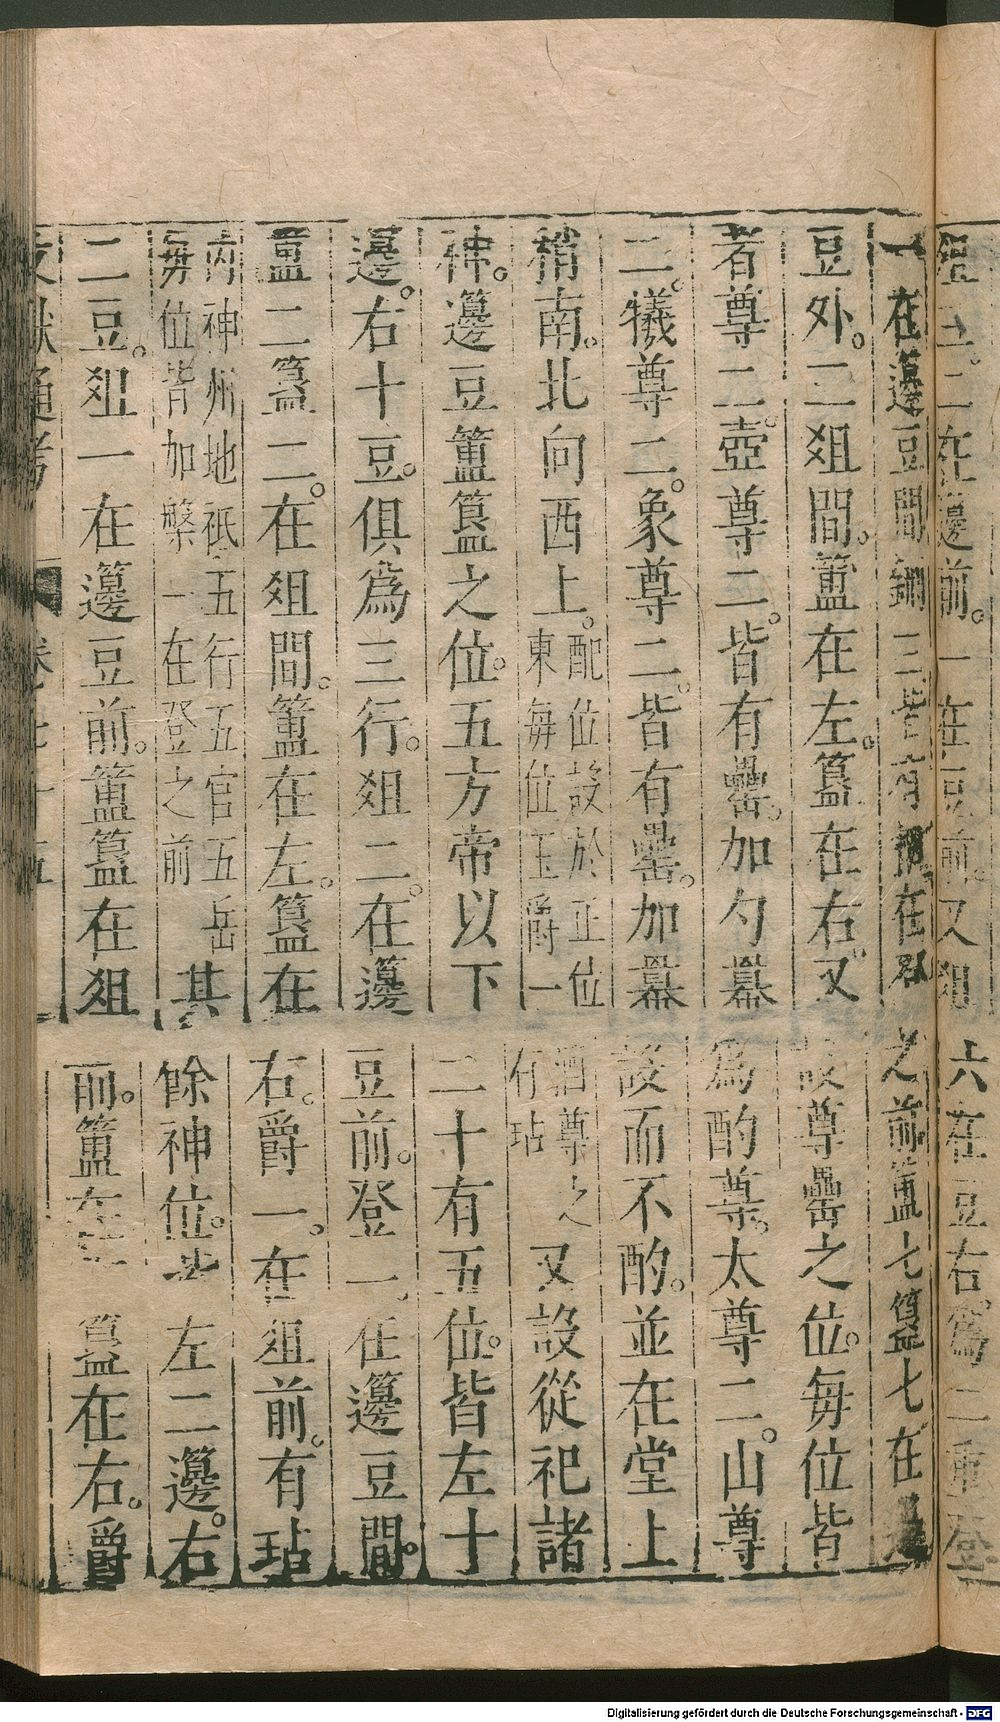 俎三。二在籩前。一在豆前。又俎六在豆右。爲二重登
一在籩豆間鉶三皆有柶在登之前簠七簋七在籩
豆外。二俎間。簠在左。簋在右。又設尊罍之位。毎位皆
著尊二。壺尊二。皆有罍。加勺羃爲酌尊。太尊二。山尊
二。犧尊二。象尊二。皆有罍。加羃設而不酌。並在堂上
稍南。北向西上。配位設於正位東毎位玉爵一酒尊之有坫又設從祀諸
神。籩豆簠簋之位。五方帝以下二十有五位。皆左十
籩。右十豆。俱爲三行。俎二。在籩豆前。登一在籩豆間。
簠二簋二。在俎間。簠在左。簋在右。爵一。在俎前。有坫
内神州地祇五行五官五岳毎位皆加槃一在登之前其餘神位。左二籩。右
二豆。俎一在籩豆前。簠簋在俎前。簠在左簋在右。爵
文獻通考 卷七十五
Digitalisierung gefördert durch die Deutsche Forschungsgemeinschaft - DFG